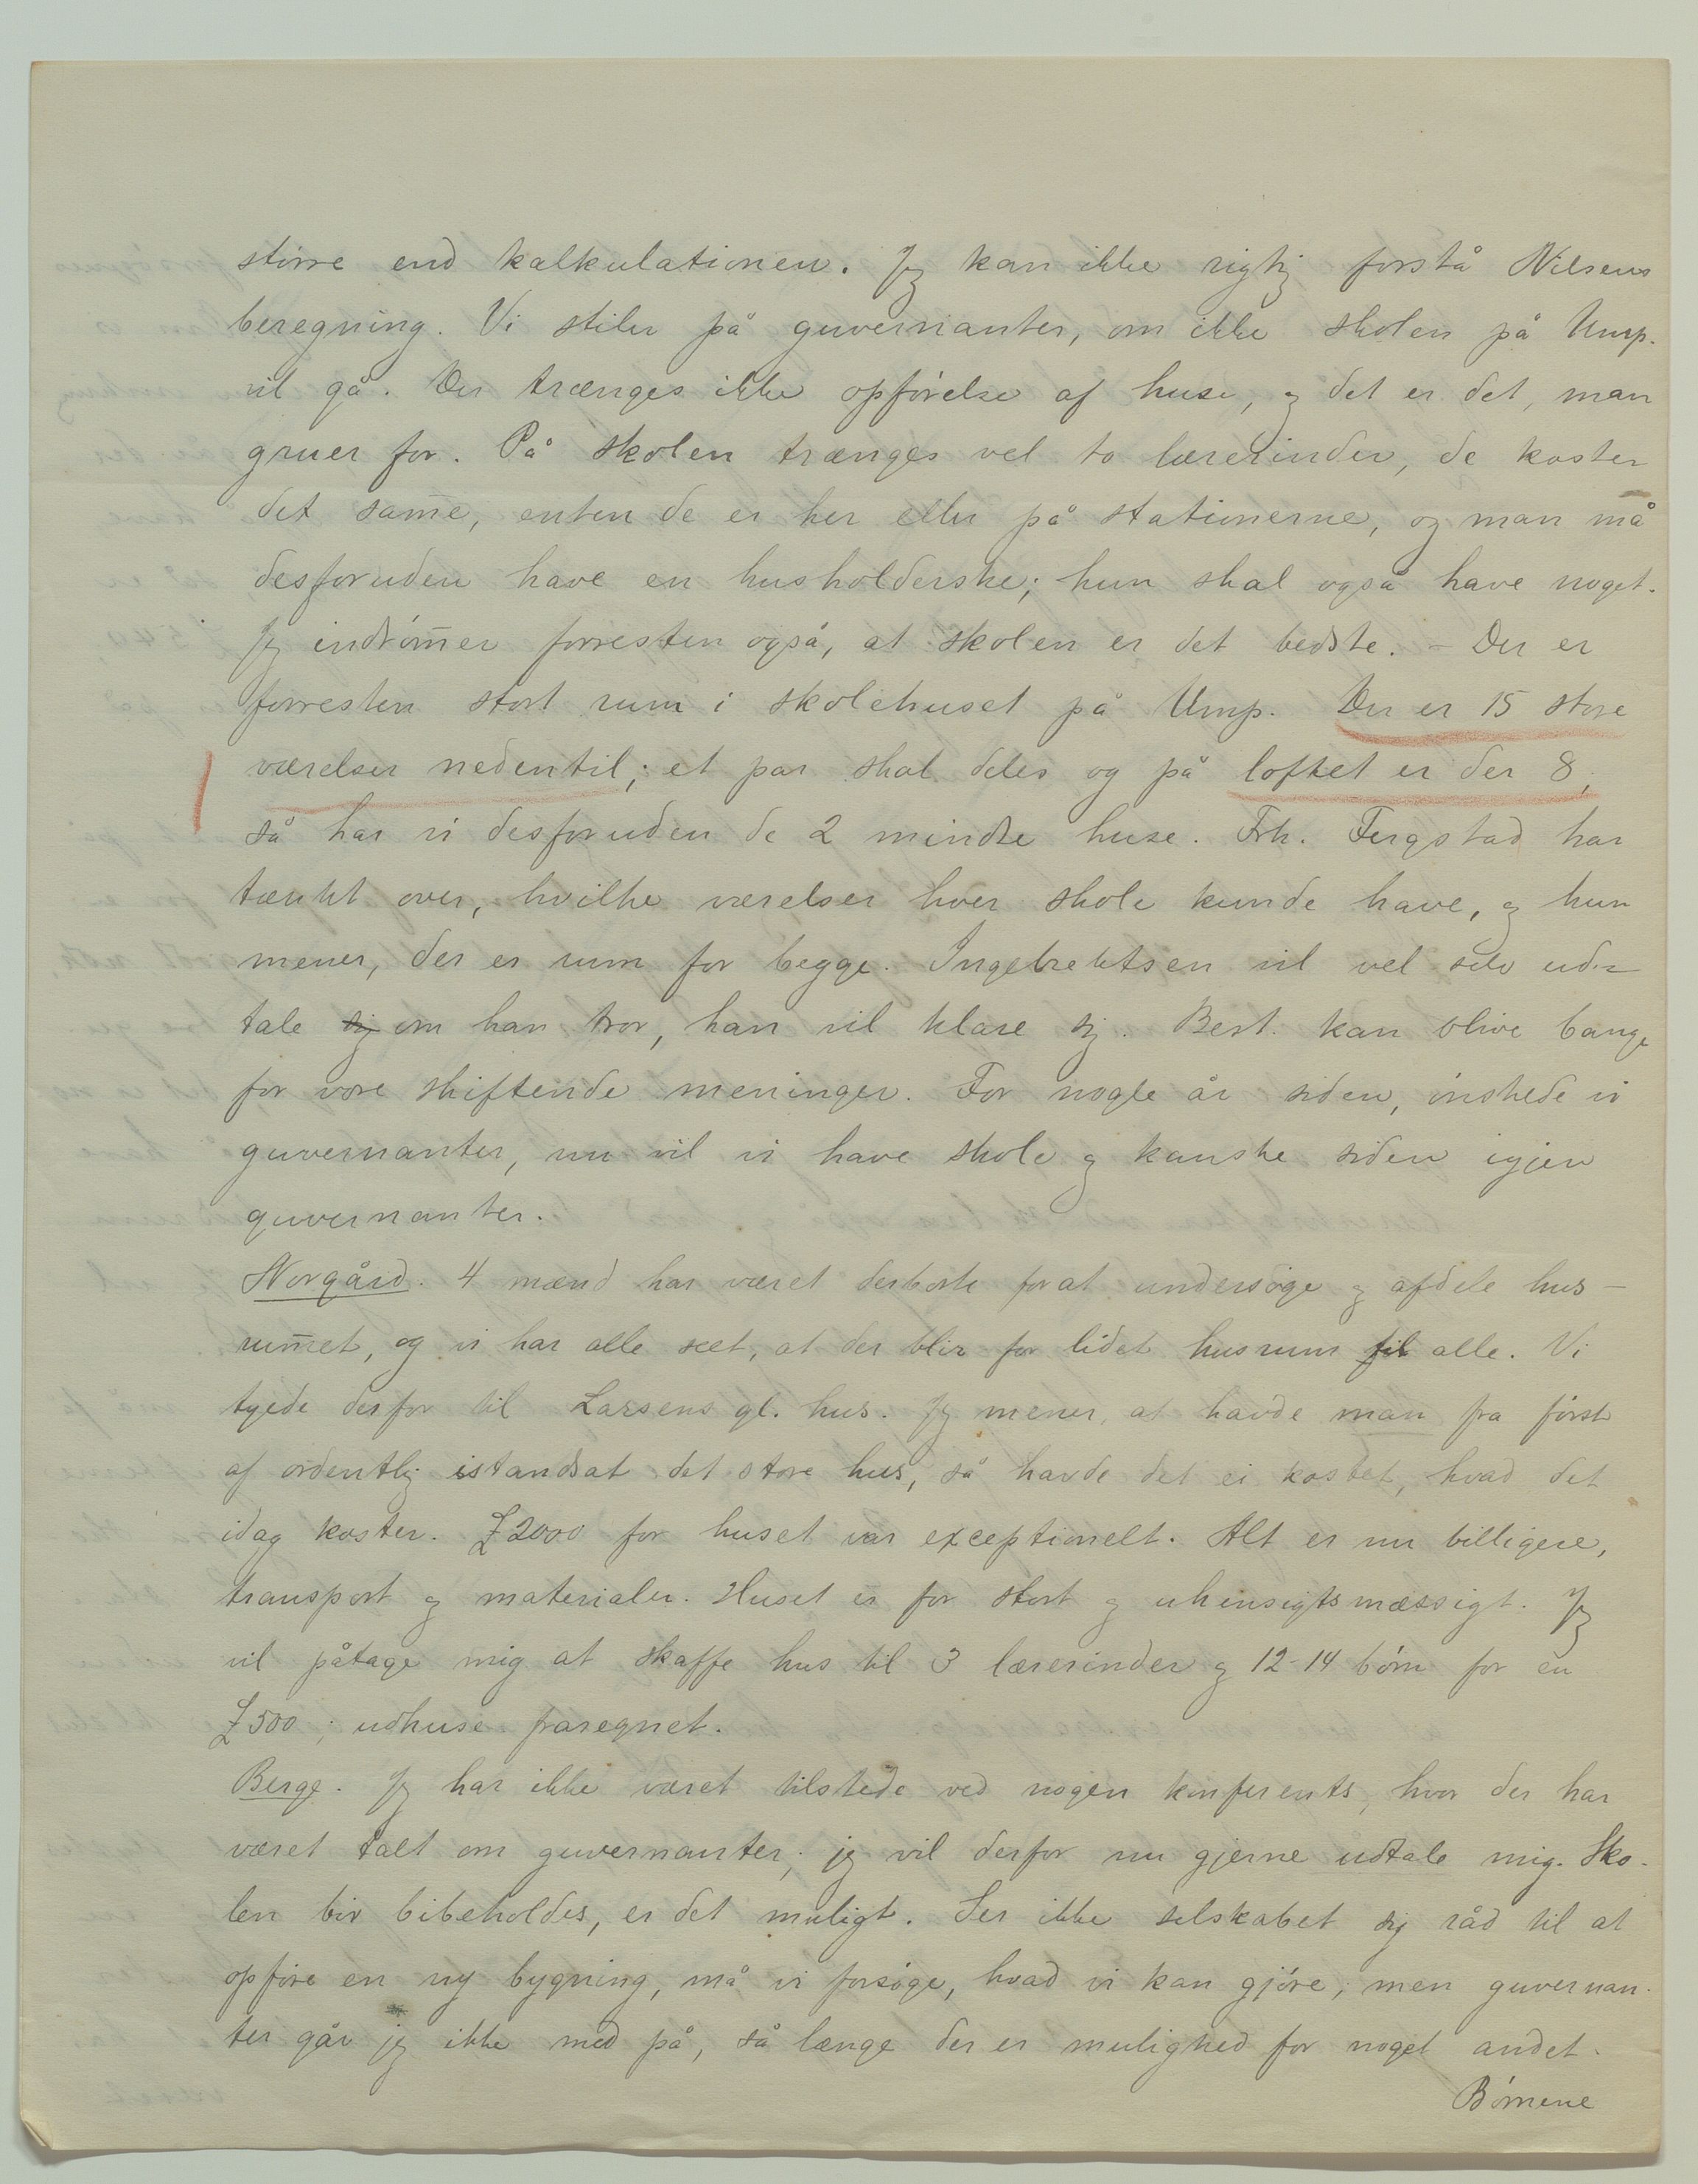 større end kalkulationen. Jeg kan ikke rigtig forstå Nilsens
beregning. Vi stiler på guvernanter, om ikke skolen på Ump.
vil gå. Der trænges ikke opførelse af huse, og det er det, man
gruer for. På skolen trænges vel to lærerinder, de koster
det sam̄e, enten de er her eller på stationerne, og man må
desforuden have en husholderske; hun skal også have noget.
Jeg indrøm̄er forresten også, at skolen er det bedste. - Der er
forresten stort rum i skolehuset på Ump. Der er 15 store
værelser nedentil; et par skal deles og på loftet er der 8,
så har vi desforuden de 2 mindre huse. Frk. Fergstad har
tænkt over, hvilke værelser hver skole kunde have, og hun
mener, der er rum for begge. Ingebrektsen vil vel selv ud-
tale sig om han tror, han vil klare sig. Best. kan blive bange
for vore skiftende meninger. For nogle år siden, ønskede vi
guvernanter, nu vil vi have skole og kanske siden igjen
guvernanter.
Norgård. 4 mænd har været derborte for at undersøge og afdele hus-
rum̄et, og vi har alle seet, at der blir for lidet husrum til alle. Vi
tyede derfor til Larsens gl. hus. Jeg mener, at havde man fra først
af ordentlig istandsat det store hus, så havde det ei kostet, hvad det
idag koster. £2000 for huset var exceptionelt. Alt er nu billigere,
transport og materialer. Huset er for stort og uhensigtsmæssigt. Jeg
vil påtage mig at skaffe hus til 3 lærerinder og 12-14 børn for en
£500; udhuse fraregnet.
Berge. Jeg har ikke været tilstede ved nogen konferents, hvor der har
været talt om guvernanter; jeg vil derfor nu gjerne udtale mig. Sko-
len bør bibeholdes, er det muligt. Ser ikke selskabet sig råd til at
opføre en ny bygning, må vi forsøge, hvad vi kan gjøre; men guvernan-
ter går jeg ikke med på, så længe der er mulighed for noget andet.
Børnene